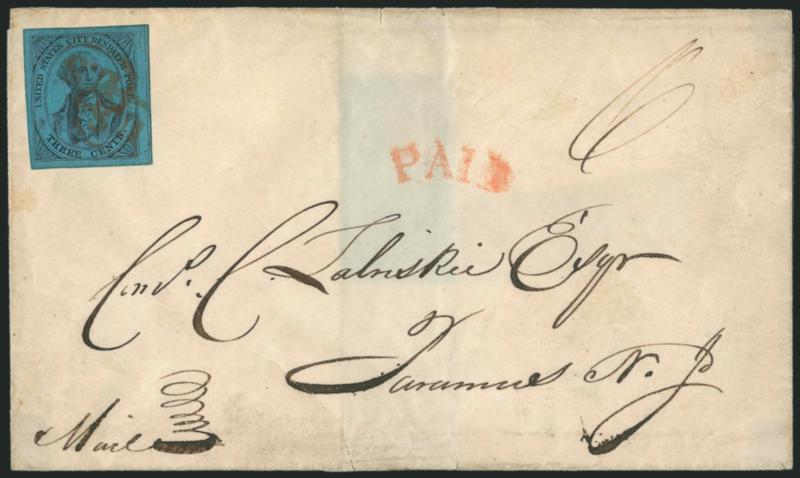 UNITED STATES CITY DESPATCH POST
THREE CENTS.
6
PAID
Cond. C. Zabriskie Esqr
Paramus N. J
Mail